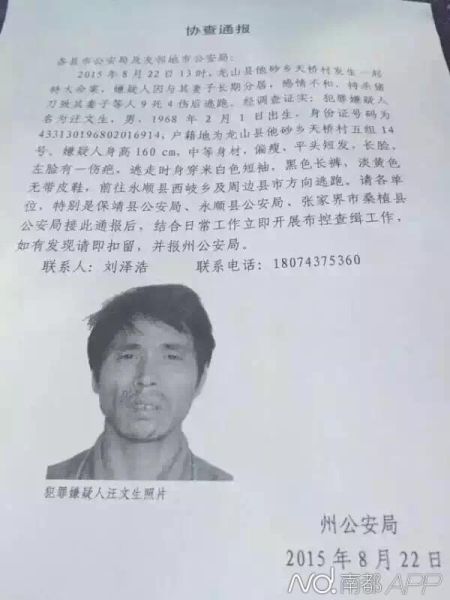 协查通报
各县市公安局及友邻地市公安局:
2015年8月22日13时,龙山县他砂乡天桥村发生一起
特大命案,嫌疑人因与其妻子长期分居,感情不和,持杀猪
刀致其妻子等人9死4伤后逃跑。经调查证实:犯罪嫌疑人
名为汪文生,男,1968年2月1日出生,身份证号码为
433130196802016914,户籍地为龙山县他砂乡天桥村五组14
号。嫌疑人身高160cm,中等身材,偏瘦,平头短发,长脸,
左脸有一伤疤,逃走时身穿米白色短袖,黑色长裤,淡黄色
无带皮鞋,前往永顺县西岐乡及周边县市方向逃跑。请各单
位,特别是保靖县公安局、永顺县公安局、张家界市桑植县
公安局接此通报后,结合日常工作立即开展布控查缉工作,
如有发现请即扣留,并报州公安局。
联系人:刘泽浩 联系电话:18074375360
犯罪嫌疑人汪文生照片
州公安局
2015年8月22日
ND.南都APP